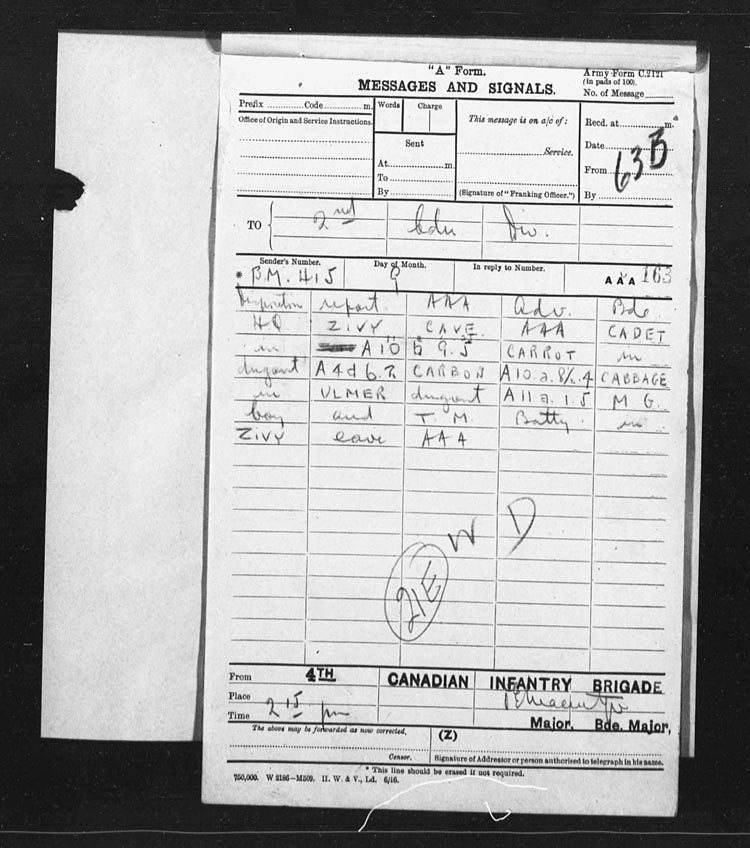 "A" Form.
Army Form C.2121
(In pads of 100).
MESSAGES AND SIGNALS.
No. of Message
Prefix Code m.
Words Charge
This message is on a/c of :
Recd. at m.
Office of Origin and Service Instructions.
Sent
Date
Service.
At m.
From
63B
To
By
(Signature of "Franking Officer.")
By
TO 2nd Cdn Div.
Sender's Number. Day of Month. In reply to Number.
* B.M. 415 9 AAA 163
Disposition report AAA Adv. Bde
HQ ZIVY CAVE AAA CADET
in A10 b 9.5 CARROT in
dugout A4d6.2 CARBON A10.a.8½.4 CABBAGE
in ULMER dugout A11a.1.5 M G.
Coy and T. M. Batty in
ZIVY cave AAA
W D
21E
From 4TH CANADIAN INFANTRY BRIGADE
Place
Time 2 15 pm
Major. Bde. Major,
The above may be forwarded as now corrected. (Z)
Censor. Signature of Addressor or person authorised to telegraph in his name.
* This line should be erased if not required.
750,000. W 2186—M509. H. W. & V., Ld. 6/16.